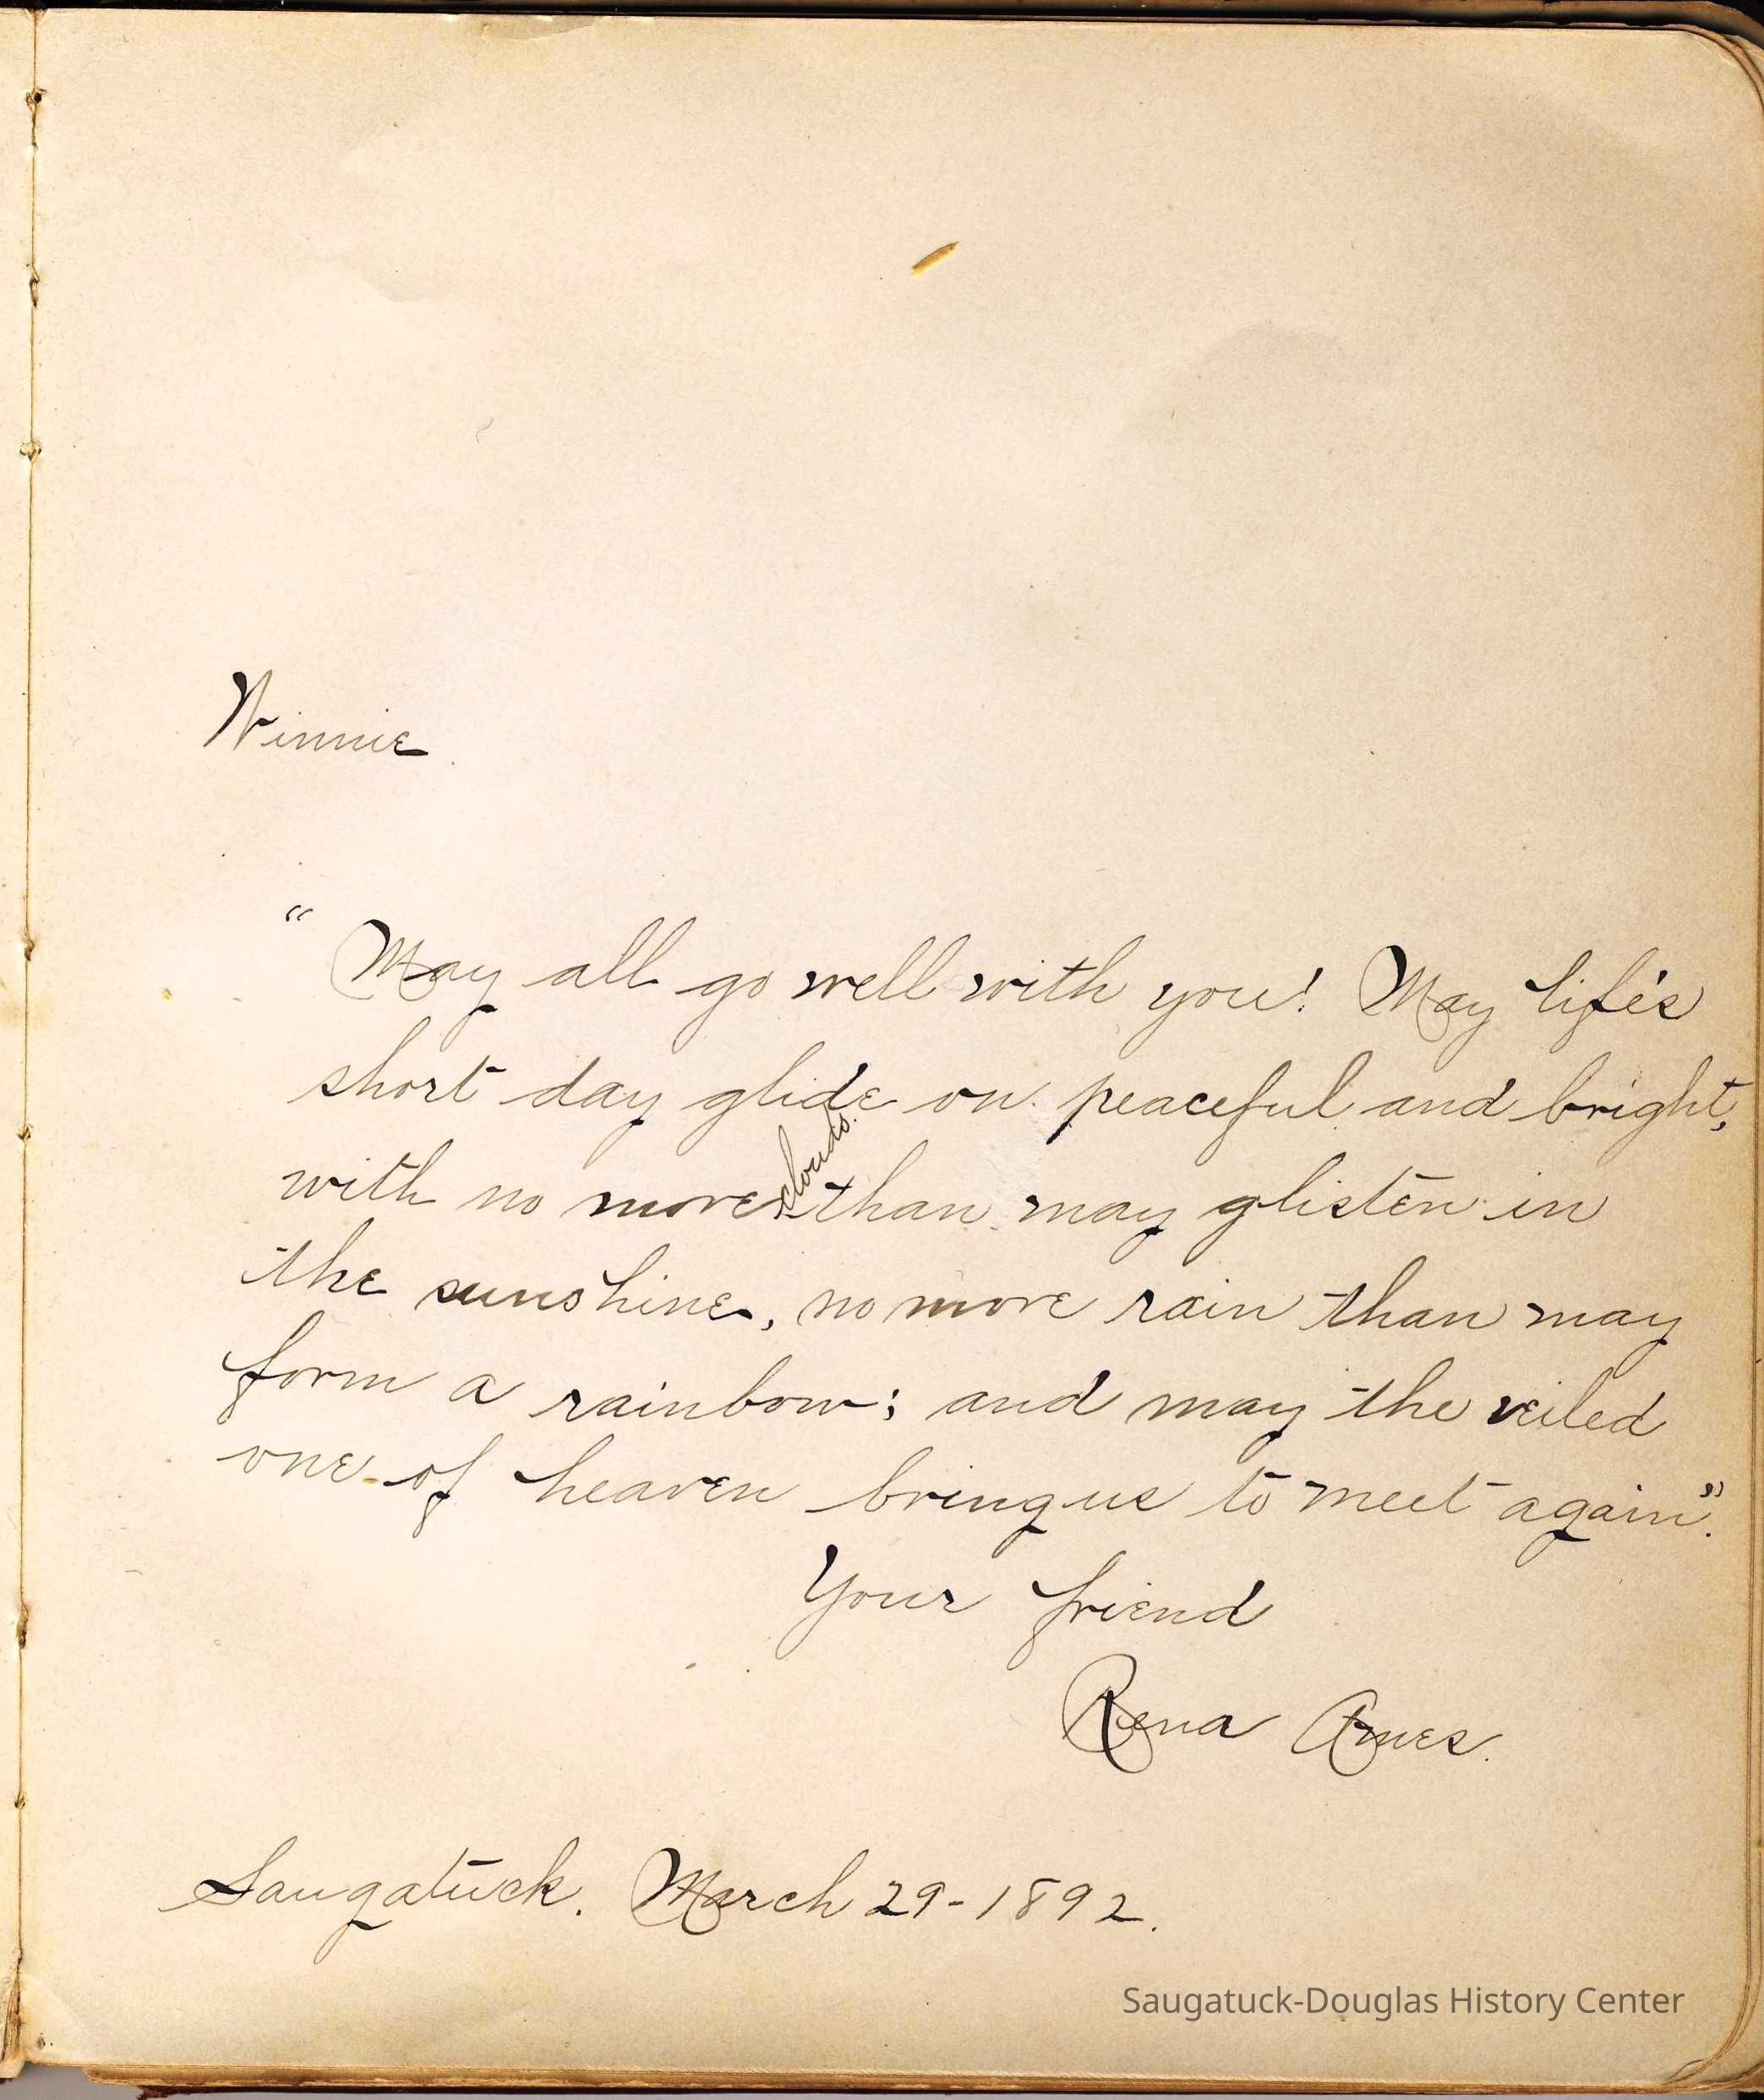 Winnie.
“May all go well with you! May life's
short day glide on peaceful and bright,
with no more clouds than may glisten in
the sunshine, no more rain than may
form a rainbow; and may the veiled
one of heaven bring us to meet again”.
Your friend
Rena Ames.
Saugatuck. March 29-1892.
Saugatuck-Douglas History Center